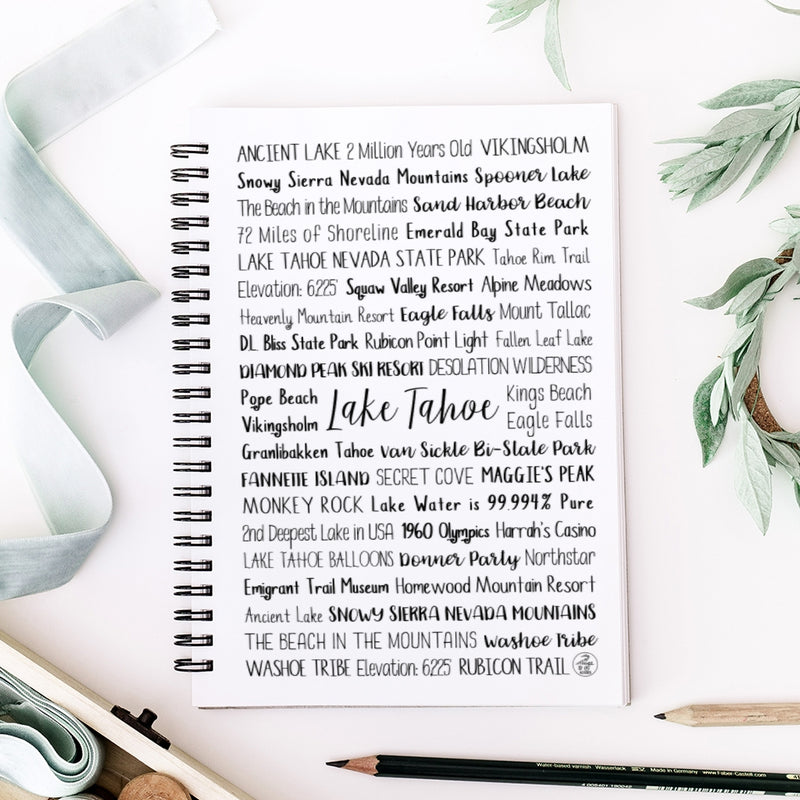 ANCIENT LAKE 2 Million Years Old VIKINGSHOLM
Snowy Sierra Nevada Mountains Spooner Lake
The Beach in the Mountains Sand Harbor Beach
72 Miles of Shoreline Emerald Bay State Park
LAKE TAHOE NEVADA STATE PARK Tahoe Rim Trail
Elevation: 6225 Squaw Valley Resort Alpine Meadows
Heavenly Mountain Resort Eagle Falls Mount Tallac
D.L. Bliss State Park Rubicon Point Light Fallen Leaf Lake
DIAMOND PEAK SKI RESORT DESOLATION WILDERNESS
Pope Beach
Vikingsholm
Lake Tahoe
Kings Beach
Eagle Falls
Granlibakken Tahoe Van Sickle Bi-State Park
FANNETTE ISLAND SECRET COVE MAGGIE'S PEAK
MONKEY ROCK Lake Water is 99.994% Pure
2nd Deepest Lake in USA 1960 Olympics Harrah's Casino
LAKE TAHOE BALLOONS Donner Party Northstar
Emigrant Trail Museum Homewood Mountain Resort
Ancient Lake SNOWY SIERRA NEVADA MOUNTAINS
THE BEACH IN THE MOUNTAINS Washoe Tribe
WASHOE TRIBE Elevation: 6225 RUBICON TRAIL
Water-based varnish Wasserlack Made in Germany www.Faber-Castell.com